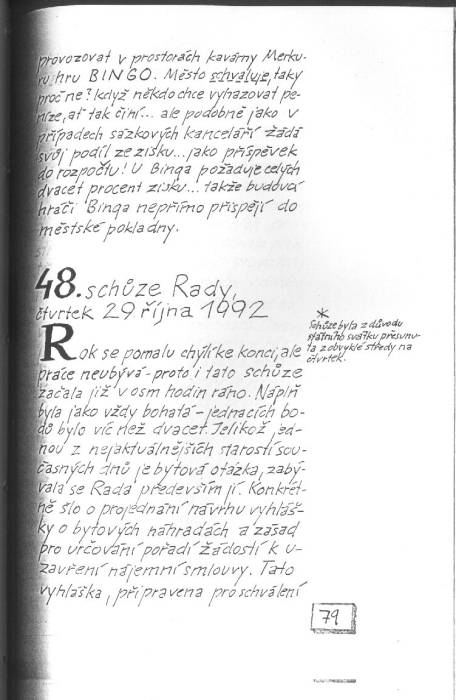 provozovat v prostorách kavárny Merku-
ru hru BINGO. Město schvaluje, taky
proč ne? když někdo chce vyhazovat pe-
níze, ať tak činí... ale podobně jako v
případech sázkových kanceláří žádá
svůj podíl ze zisku... jako příspěvek
do rozpočtu! U Binga požaduje celých
dvacet procent zisku... takže budoucí
hráči Binga nepřímo přispějí do
městské pokladny.
48. schůze Rady,
čtvrtek 29 října 1992
*
Schůze byla z důvodu
státního svátku přesunu-
ta z obvyklé středy na
čtvrtek.
Rok se pomalu chýlí ke konci, ale
práce neubývá - proto i tato schůze
začala již v osm hodin ráno. Náplň
byla jako vždy bohatá - jednacích bo-
dů bylo víc než dvacet. Jelikož jed-
nou z nejaktuálnějších starostí sou-
časných dnů je bytová otázka, zabý-
vala se Rada především jí. Konkrét-
ně šlo o projednání návrhu vyhláš-
ky o bytových náhradách a zásad
pro určování pořadí žádostí k u-
zavření nájemní smlouvy. Tato
vyhláška, připravena pro schválení
79